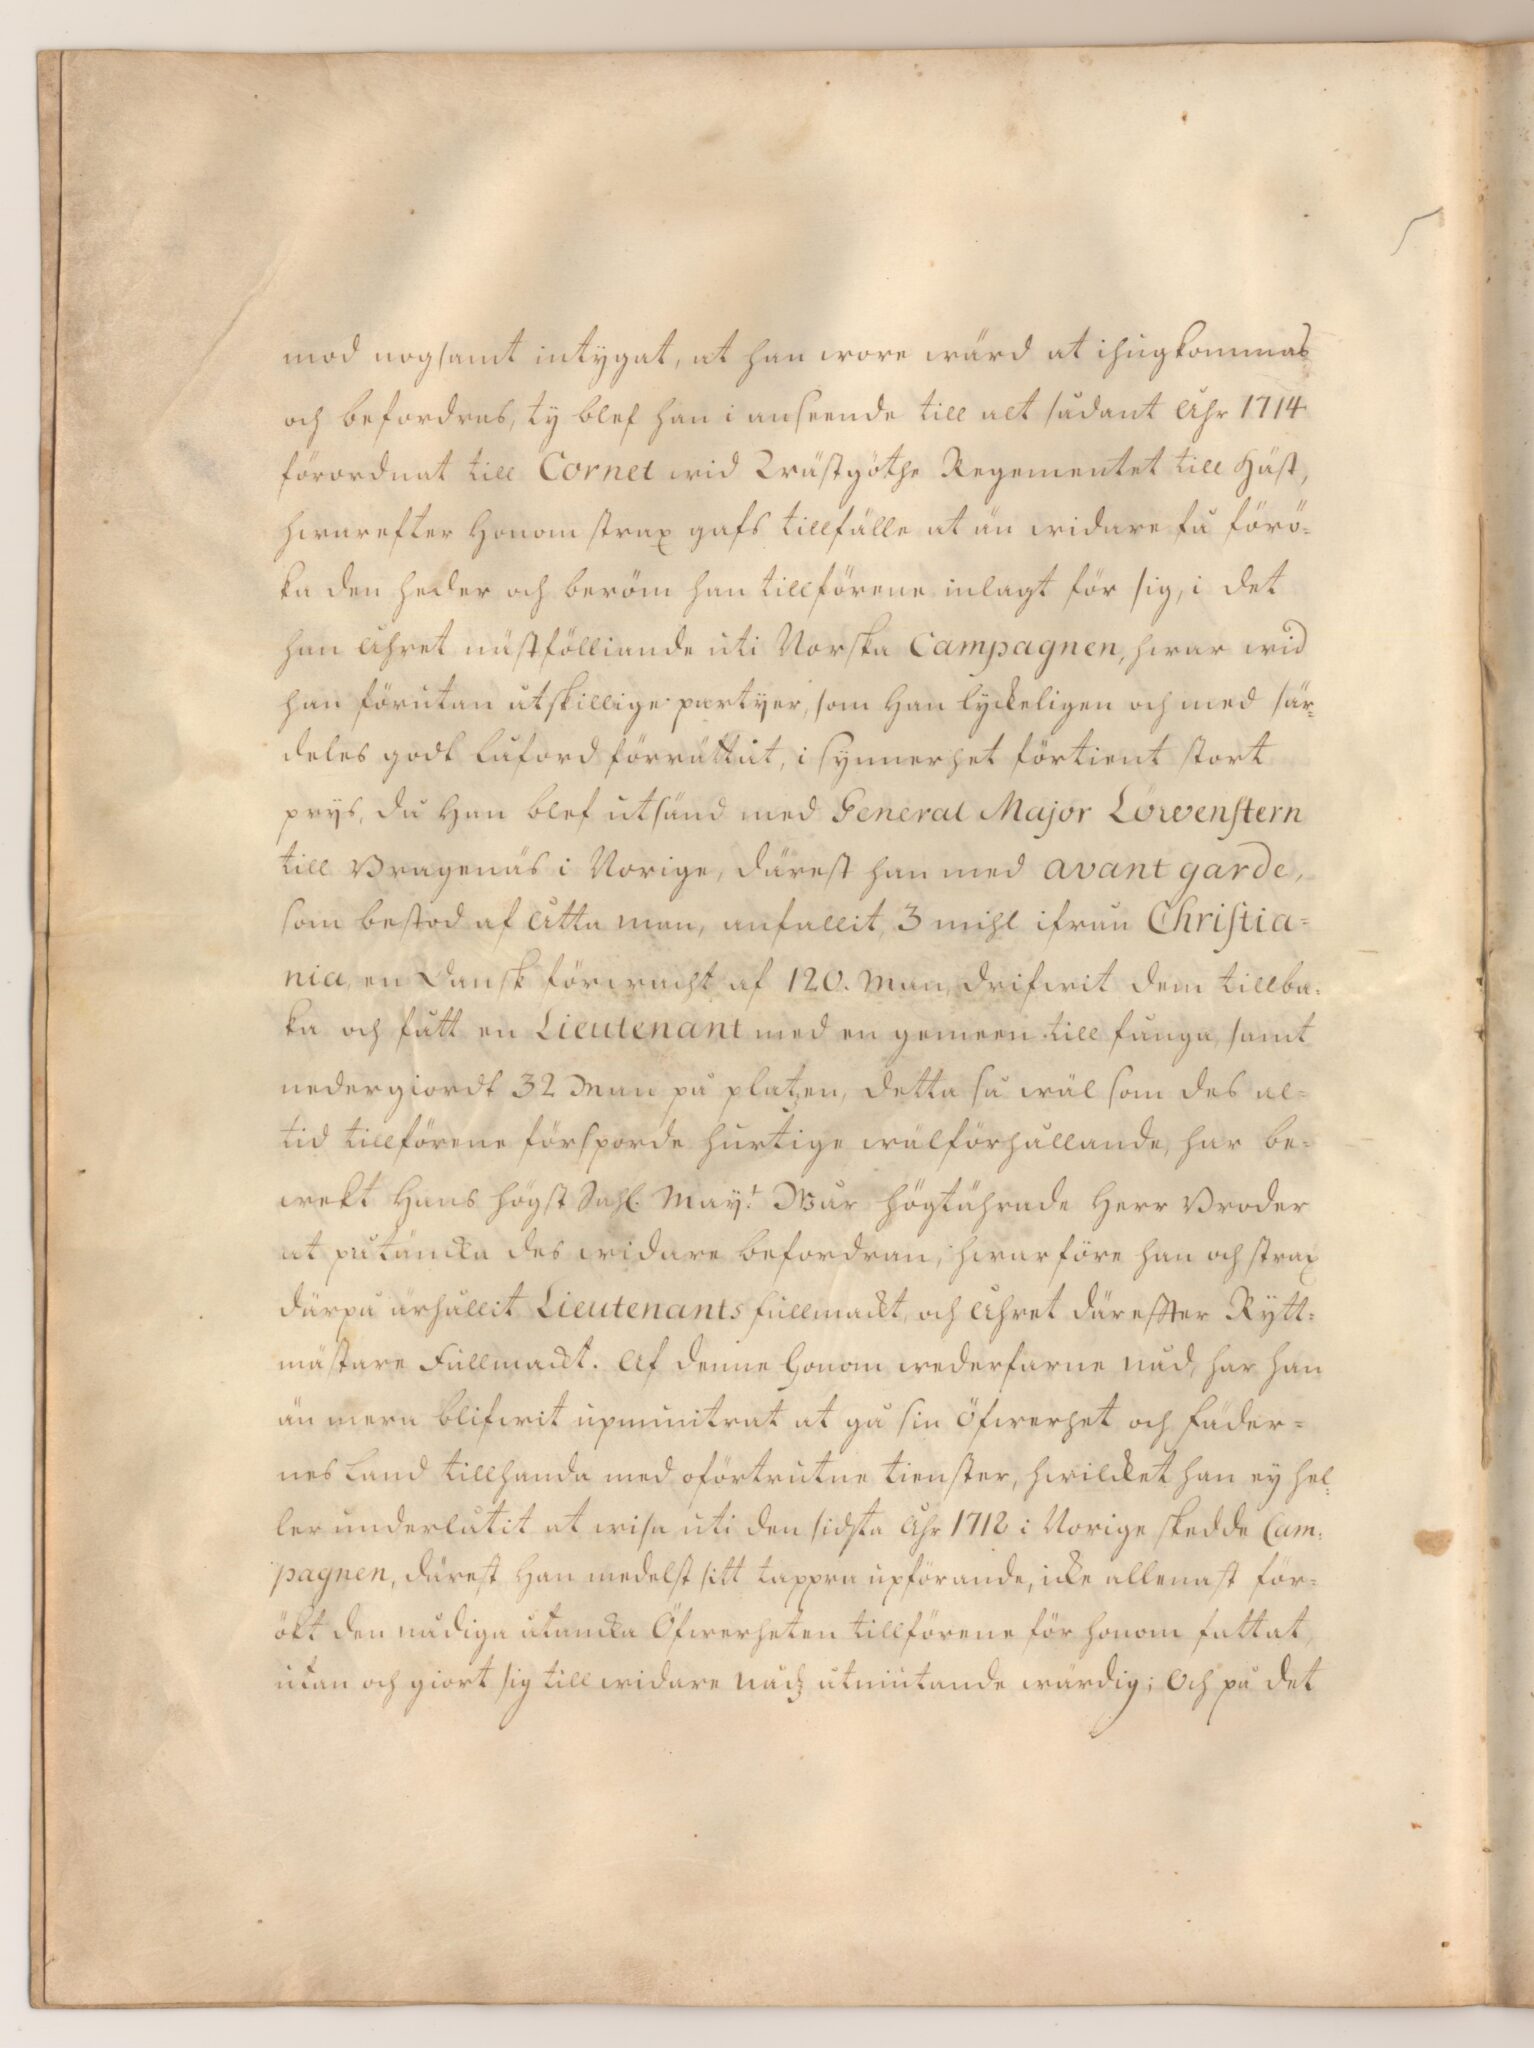 mod nogsamt intygat, at han wore wärd at ihugkommas
och befordras, ty blef han i anseende till alt sådant Åhr 1714
förordnat till Cornet wid Wästgöthe Regementet till Häst,
hwarefter Honom strax gafs tillfälle at än widare få förö-
ka den heder och beröm han tillförene inlagt för sig, i det
han Åhret nästfölliande uti Norska Campagnen, hwar wid
han förutan utskillige partyer, som Han lyckeligen och med sär-
deles godt laford förrättat, i synnerhet förtient stort
prys, då Han blef utsänd med General Major Löwenstern
till Bragenäs i Norige, därest han med avant garde,
som bestod af Åtta man, anfallit, 3 mihl ifrån Christia-
nia, en Dansk förwacht af 120. Man, drifwit dem tillba-
ka och fått en Lieutenant med en gemeen till fånga, samt
nedergiordt 32 Man på platzen, detta så wäl som des al-
tid tillförene försporde hurtige wälförhållande, har be-
wekt Hans högst Sahl. Mayt. Wår högtährade Herr Broder
at påtäncka des widare befordran, hwarföre han och strax
därpå ärhållit Lieutenants fullmackt, och Åhret därefter Rytt-
mästare Fullmackt. Af denne honom wederfarne nåd, har han
än mera blifwit upmuntrat at gå sin Öfwerhet och Fäder-
nes Land tillhanda med oförtrutne tienster, hwilcket han ey hel-
ler underlåtit at wisa uti den sidsta Åhr 1718 i Norige skedde Cam-
pagnen, därest Han medelst sitt tappra upförande, icke allenast för-
ökt den nådiga åtancka Öfwerheten tillförene för honom fattat,
utan och giort sig till widare nådz åtniutande wärdig; Och på det